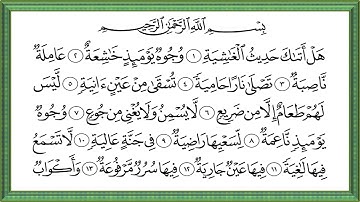 بِسْمِ اللَّهِ الرَّحْمَٰنِ الرَّحِيمِ
هَلْ أَتَىٰكَ حَدِيثُ الْغَٰشِيَةِ ١ وُجُوهٌ يَوْمَئِذٍ خَٰشِعَةٌ ٢ عَامِلَةٌ
نَّاصِبَةٌ ٣ تَصْلَىٰ نَارًا حَامِيَةً ٤ تُسْقَىٰ مِنْ عَيْنٍ ءَانِيَةٍ ٥ لَّيْسَ
لَهُمْ طَعَامٌ إِلَّا مِن ضَرِيعٍ ٦ لَّا يُسْمِنُ وَلَا يُغْنِي مِن جُوعٍ ٧ وُجُوهٌ
يَوْمَئِذٍ نَّاعِمَةٌ ٨ لِّسَعْيِهَا رَاضِيَةٌ ٩ فِي جَنَّةٍ عَالِيَةٍ ١٠ لَّا تَسْمَعُ
فِيهَا لَٰغِيَةً ١١ فِيهَا عَيْنٌ جَارِيَةٌ ١٢ فِيهَا سُرُرٌ مَّرْفُوعَةٌ ١٣ وَأَكْوَابٌ